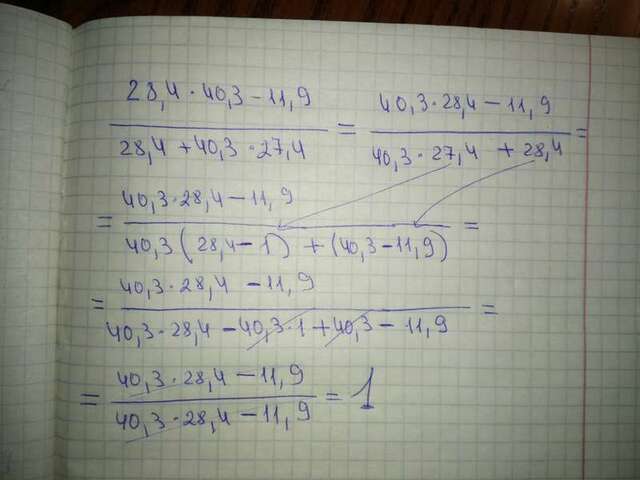 28,4 · 40,3 - 11,9 / 28,4 + 40,3 · 27,4 = 40,3 · 28,4 - 11,9 / 40,3 · 27,4 + 28,4 =
= 40,3 · 28,4 - 11,9 / 40,3 (28,4 - 1) + (40,3 - 11,9) =
= 40,3 · 28,4 - 11,9 / 40,3 · 28,4 - 40,3 · 1 + 40,3 - 11,9 =
= 40,3 · 28,4 - 11,9 / 40,3 · 28,4 - 11,9 = 1